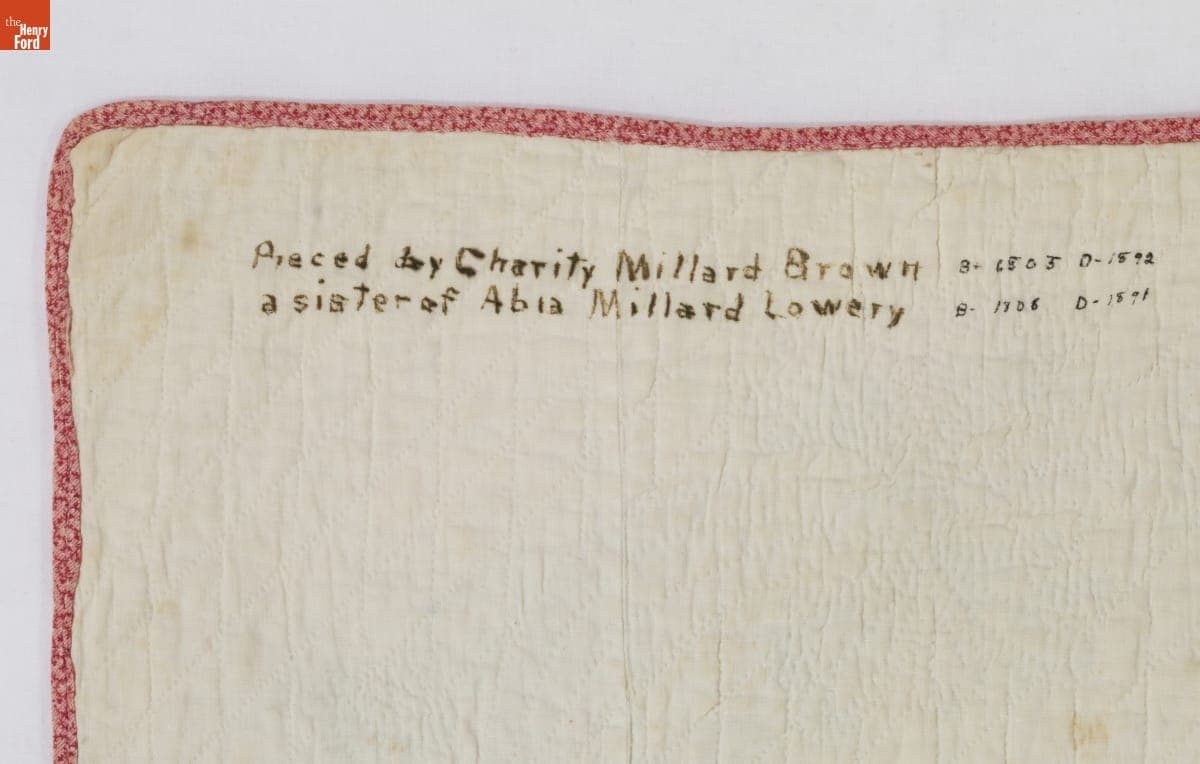 the
Henry
Ford
Pieced by Charity Millard Brown B- 1803 D-1892
a sister of Abia Millard Lowery B- 1806 D-1891